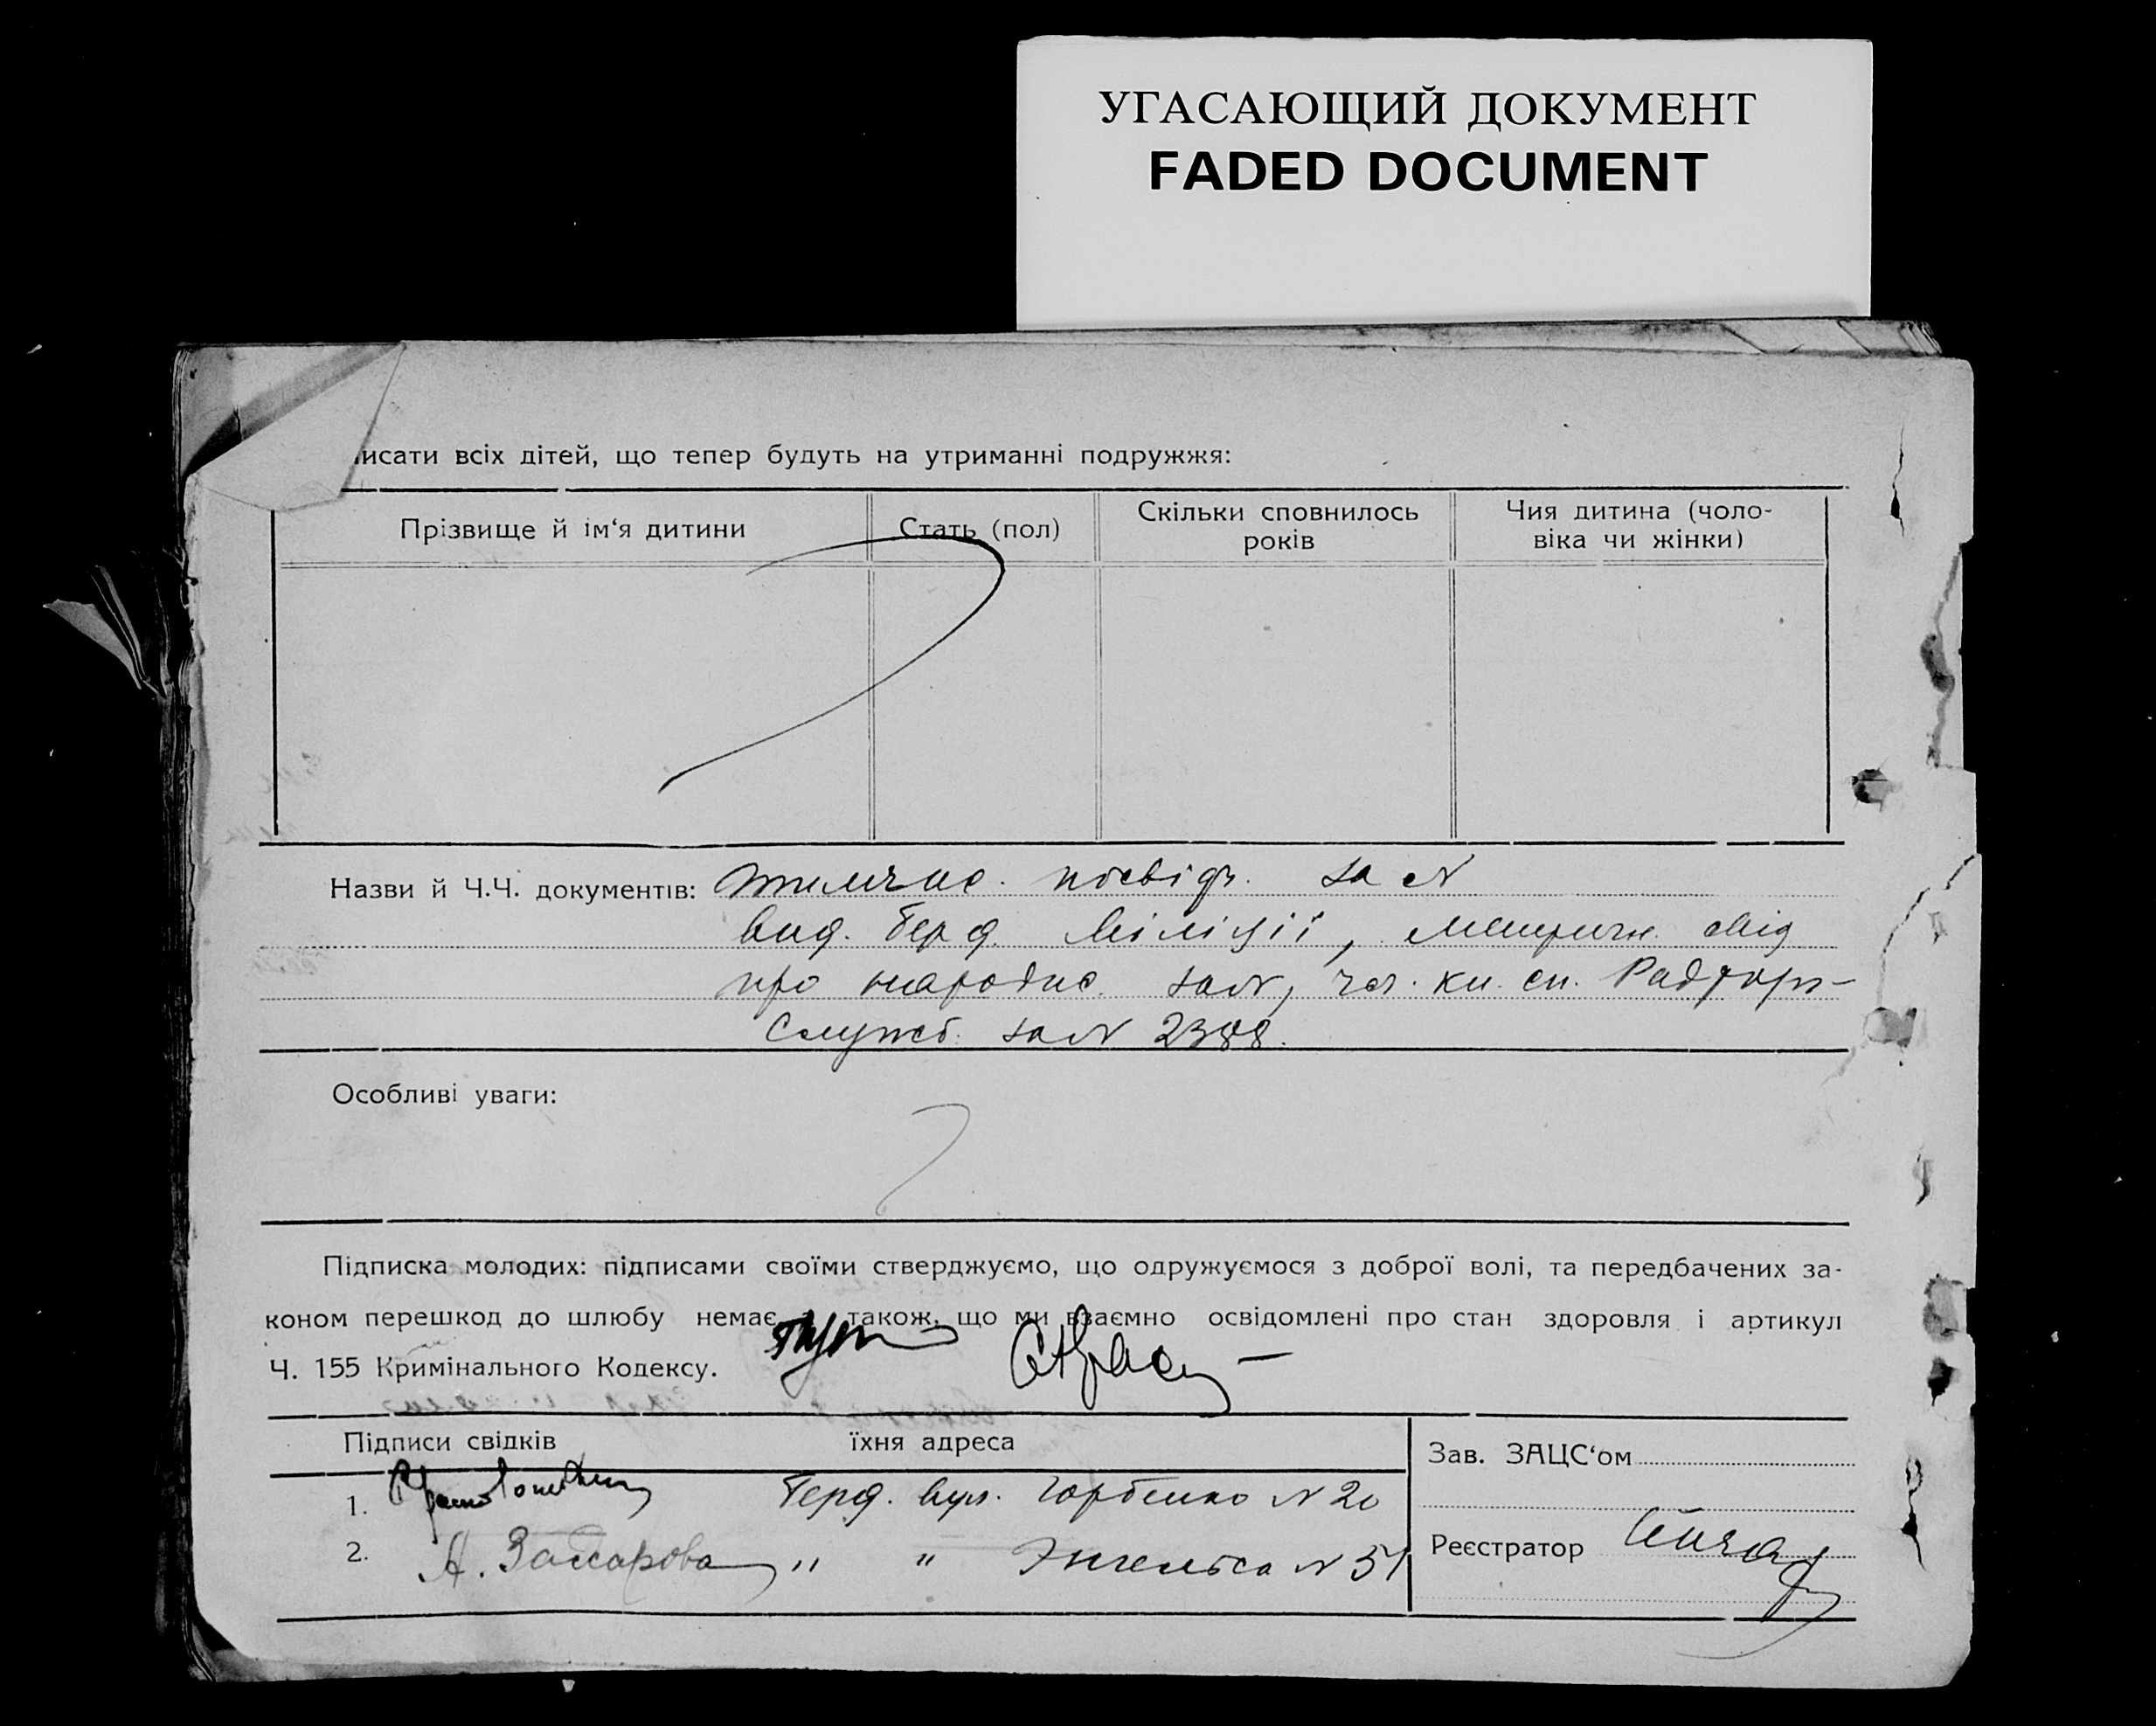 УГАСАЮЩИЙ ДОКУМЕНТ
FADED DOCUMENT
исати всіх дітей, що тепер будуть на утриманні подружжя:
Прізвище й ім‘я дитини
Стать (пол)
Скільки сповнилось
років
Чия дитина (чоло-
віка чи жінки)
Назви й Ч.Ч. документів: тимчас. посвідч. за №
вид. Берд. міліції, метричн. свід
про народж. за №, чл. кн. сп. Радторг-
служб. за № 2388.
Особливі уваги:
Підписка молодих: підписами своїми стверджуємо, що одружуємося з доброї волі, та передбачених за-
коном перешкод до шлюбу немає також, що ми взаємно освідомлені про стан здоровля і артикул
Ч. 155 Кримінального Кодексу.
Підписи свідків
їхня адреса
1. Берд. вул. Горбенко № 20
2. А. " " Энгельса № 51
Зав. ЗАЦС‘ом
Реєстратор